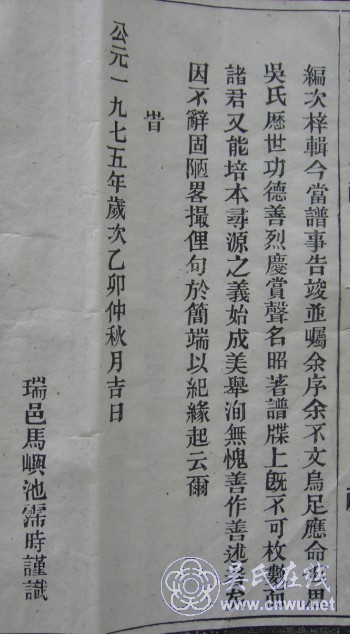 編次梓輯今當譜事告竣並囑余序余不文烏足應命汝思
吳氏歷世功德善烈慶賞聲名昭著譜牒上既不可枚數而
諸君又能培本尋源之義始成美舉洵無愧善作善述者矣
因不辭固陋畧撮俚句於簡端以紀緣起云爾
旹
公元一九七五年歲次乙卯仲秋月吉日
瑞邑馬嶼池霈時謹識
吴氏在线
www.cnwu.net